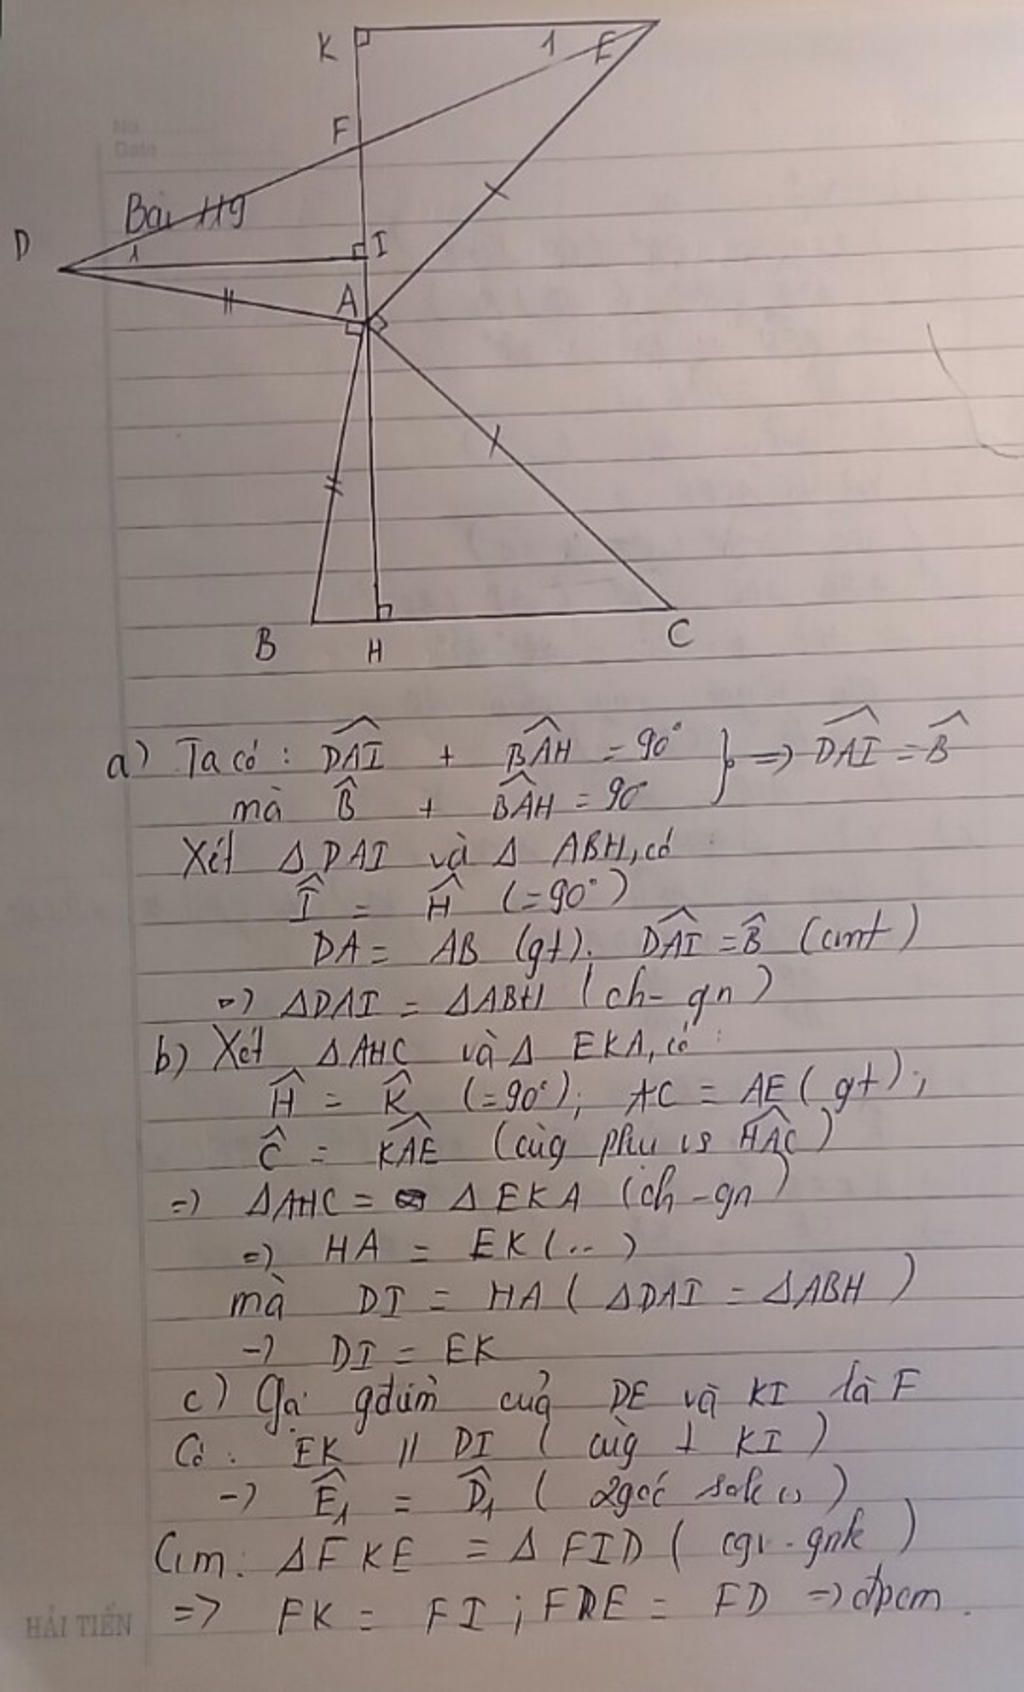 K
1
E
F
No.
Date
Bài 119
D
1
I
A
B
H
C
a) Ta có : DAI + BAH = 90° } => DAI = B
mà B + BAH = 90°
Xét Δ DAI và Δ ABH, có
I = H (=90°)
DA = AB (gt). DAI = B (cmt)
=> ΔDAI = ΔABH (ch - gn)
b) Xét ΔAHC và Δ EKA, có :
H = K (=90°); AC = AE (gt);
C = KAE (cùg phụ vs HAC)
=> ΔAHC = ΔEKA (ch - gn)
=> HA = EK (..)
mà DI = HA (ΔDAI = ΔABH)
-> DI = EK
c) Gọi gđiểm củả DE và KI là F
Có : EK // DI (cùg ⊥ KI)
-> E1 = D1 (2góc)
Cm: ΔFKE = ΔFID (cgv - gnk)
=> FK = FI ; FE = FD => đpcm.
HẢI TIẾN